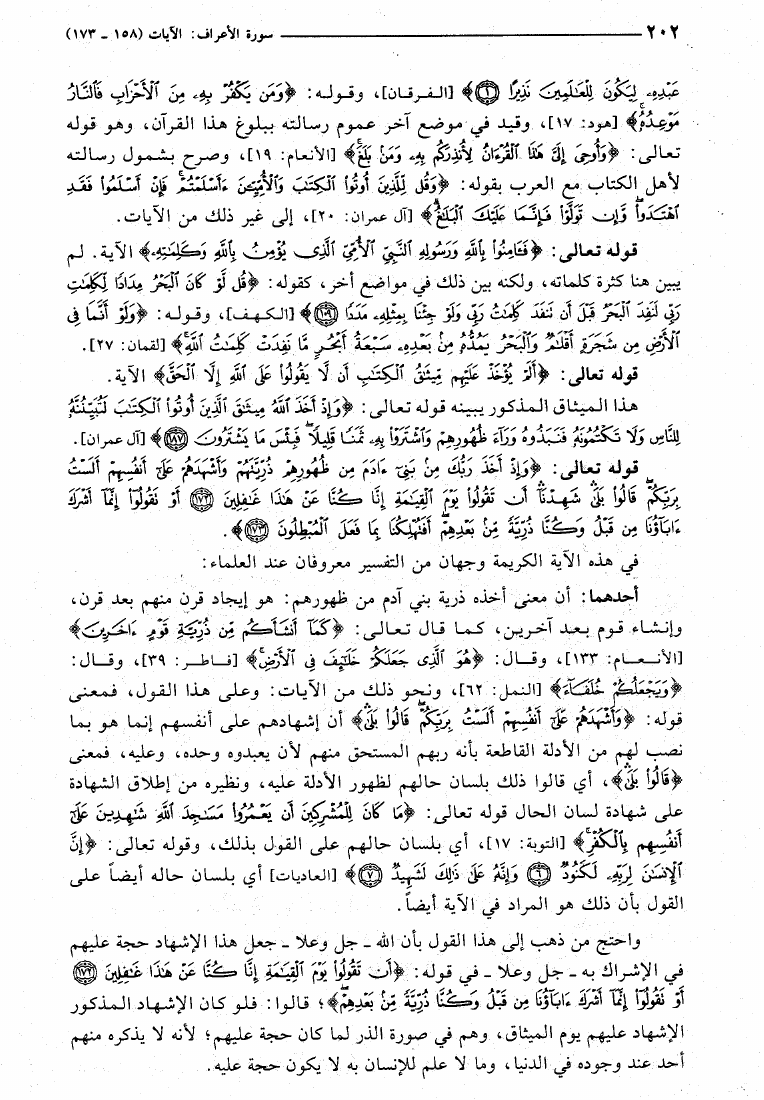 ٢٠٢ سورة الأعراف: الآيات (١٥٨ ـ ١٧٣)
عَبْدِهِۦ لِيَكُونَ لِلْعَٰلَمِينَ نَذِيرًا ۝١﴾ [الفرقان]، وقوله: ﴿وَمَن يَكْفُرْ بِهِۦ مِنَ ٱلْأَحْزَابِ فَٱلنَّارُ
مَوْعِدُهُۥ﴾ [هود: ١٧]، وقيد في موضع آخر عموم رسالته ببلوغ هذا القرآن، وهو قوله
تعالى: ﴿وَأُوحِىَ إِلَىَّ هَٰذَا ٱلْقُرْءَانُ لِأُنذِرَكُم بِهِۦ وَمَنۢ بَلَغَ﴾ [الأنعام: ١٩]، وصرح بشمول رسالته
لأهل الكتاب مع العرب بقوله: ﴿وَقُل لِّلَّذِينَ أُوتُوا۟ ٱلْكِتَٰبَ وَٱلْأُمِّيِّـۧنَ ءَأَسْلَمْتُمْ فَإِنْ أَسْلَمُوا۟ فَقَدِ
ٱهْتَدَوا۟ وَّإِن تَوَلَّوْا۟ فَإِنَّمَا عَلَيْكَ ٱلْبَلَٰغُ﴾ [آل عمران: ٢٠]، إلى غير ذلك من الآيات.
قوله تعالى: ﴿فَـَٔامِنُوا۟ بِٱللَّهِ وَرَسُولِهِ ٱلنَّبِىِّ ٱلْأُمِّىِّ ٱلَّذِى يُؤْمِنُ بِٱللَّهِ وَكَلِمَٰتِهِۦ﴾ الآية. لم
يبين هنا كثرة كلماته، ولكنه بين ذلك في مواضع أخر، كقوله: ﴿قُل لَّوْ كَانَ ٱلْبَحْرُ مِدَادًا لِّكَلِمَٰتِ
رَبِّى لَنَفِدَ ٱلْبَحْرُ قَبْلَ أَن تَنفَدَ كَلِمَٰتُ رَبِّى وَلَوْ جِئْنَا بِمِثْلِهِۦ مَدَدًا ۝١٠٩﴾ [الكهف]، وقوله: ﴿وَلَوْ أَنَّمَا فِى
ٱلْأَرْضِ مِن شَجَرَةٍ أَقْلَٰمٌ وَٱلْبَحْرُ يَمُدُّهُۥ مِنۢ بَعْدِهِۦ سَبْعَةُ أَبْحُرٍ مَّا نَفِدَتْ كَلِمَٰتُ ٱللَّهِ﴾ [لقمان: ٢٧].
قوله تعالى: ﴿أَلَمْ يُؤْخَذْ عَلَيْهِم مِّيثَٰقُ ٱلْكِتَٰبِ أَن لَّا يَقُولُوا۟ عَلَى ٱللَّهِ إِلَّا ٱلْحَقَّ﴾ الآية.
هذا الميثاق المذكور يبينه قوله تعالى: ﴿وَإِذْ أَخَذَ ٱللَّهُ مِيثَٰقَ ٱلَّذِينَ أُوتُوا۟ ٱلْكِتَٰبَ لَتُبَيِّنُنَّهُۥ
لِلنَّاسِ وَلَا تَكْتُمُونَهُۥ فَنَبَذُوهُ وَرَآءَ ظُهُورِهِمْ وَٱشْتَرَوْا۟ بِهِۦ ثَمَنًا قَلِيلًا فَبِئْسَ مَا يَشْتَرُونَ ۝١٨٧﴾ [آل عمران].
قوله تعالى: ﴿وَإِذْ أَخَذَ رَبُّكَ مِنۢ بَنِىٓ ءَادَمَ مِن ظُهُورِهِمْ ذُرِّيَّتَهُمْ وَأَشْهَدَهُمْ عَلَىٰٓ أَنفُسِهِمْ أَلَسْتُ
بِرَبِّكُمْ قَالُوا۟ بَلَىٰ شَهِدْنَآ أَن تَقُولُوا۟ يَوْمَ ٱلْقِيَٰمَةِ إِنَّا كُنَّا عَنْ هَٰذَا غَٰفِلِينَ ۝١٧٢ أَوْ تَقُولُوٓا۟ إِنَّمَآ أَشْرَكَ
ءَابَآؤُنَا مِن قَبْلُ وَكُنَّا ذُرِّيَّةً مِّنۢ بَعْدِهِمْ أَفَتُهْلِكُنَا بِمَا فَعَلَ ٱلْمُبْطِلُونَ ۝١٧٣﴾.
في هذه الآية الكريمة وجهان من التفسير معروفان عند العلماء:
أحدهما: أن معنى أخذه ذرية بني آدم من ظهورهم: هو إيجاد قرن منهم بعد قرن،
وإنشاء قوم بعد آخرين، كما قال تعالى: ﴿كَمَآ أَنشَأَكُم مِّن ذُرِّيَّةِ قَوْمٍ ءَاخَرِينَ﴾
[الأنعام: ١٣٣]، وقال: ﴿هُوَ ٱلَّذِى جَعَلَكُمْ خَلَٰٓئِفَ فِى ٱلْأَرْضِ﴾ [فاطر: ٣٩]، وقال:
﴿وَيَجْعَلُكُمْ خُلَفَآءَ﴾ [النمل: ٦٢]، ونحو ذلك من الآيات: وعلى هذا القول، فمعنى
قوله: ﴿وَأَشْهَدَهُمْ عَلَىٰٓ أَنفُسِهِمْ أَلَسْتُ بِرَبِّكُمْ قَالُوا۟ بَلَىٰ﴾ أن إشهادهم على أنفسهم إنما هو بما
نصب لهم من الأدلة القاطعة بأنه ربهم المستحق منهم لأن يعبدوه وحده، وعليه، فمعنى
﴿قَالُوا۟ بَلَىٰ﴾، أي قالوا ذلك بلسان حالهم لظهور الأدلة عليه، ونظيره من إطلاق الشهادة
على شهادة لسان الحال قوله تعالى: ﴿مَا كَانَ لِلْمُشْرِكِينَ أَن يَعْمُرُوا۟ مَسَٰجِدَ ٱللَّهِ شَٰهِدِينَ عَلَىٰٓ
أَنفُسِهِم بِٱلْكُفْرِ﴾ [التوبة: ١٧]، أي بلسان حالهم على القول بذلك، وقوله تعالى: ﴿إِنَّ
ٱلْإِنسَٰنَ لِرَبِّهِۦ لَكَنُودٌ ۝٦ وَإِنَّهُۥ عَلَىٰ ذَٰلِكَ لَشَهِيدٌ ۝٧﴾ [العاديات] أي بلسان حاله أيضاً على
القول بأن ذلك هو المراد في الآية أيضاً.
واحتج من ذهب إلى هذا القول بأن الله ـ جل وعلا ـ جعل هذا الإشهاد حجة عليهم
في الإشراك به ـ جل وعلا ـ في قوله: ﴿أَن تَقُولُوا۟ يَوْمَ ٱلْقِيَٰمَةِ إِنَّا كُنَّا عَنْ هَٰذَا غَٰفِلِينَ ۝١٧٢
أَوْ تَقُولُوٓا۟ إِنَّمَآ أَشْرَكَ ءَابَآؤُنَا مِن قَبْلُ وَكُنَّا ذُرِّيَّةً مِّنۢ بَعْدِهِمْ﴾؛ قالوا: فلو كان الإشهاد المذكور
الإشهاد عليهم يوم الميثاق، وهم في صورة الذر لما كان حجة عليهم؛ لأنه لا يذكره منهم
أحد عند وجوده في الدنيا، وما لا علم للإنسان به لا يكون حجة عليه.